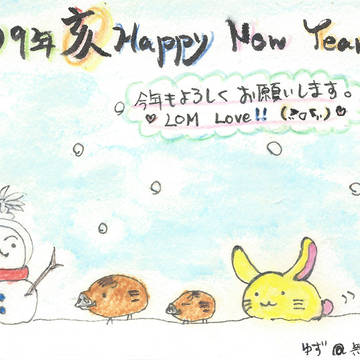 09年 亥 Happy New Year
今年もよろしくお願いします。
LOM Love!!
ゆず@